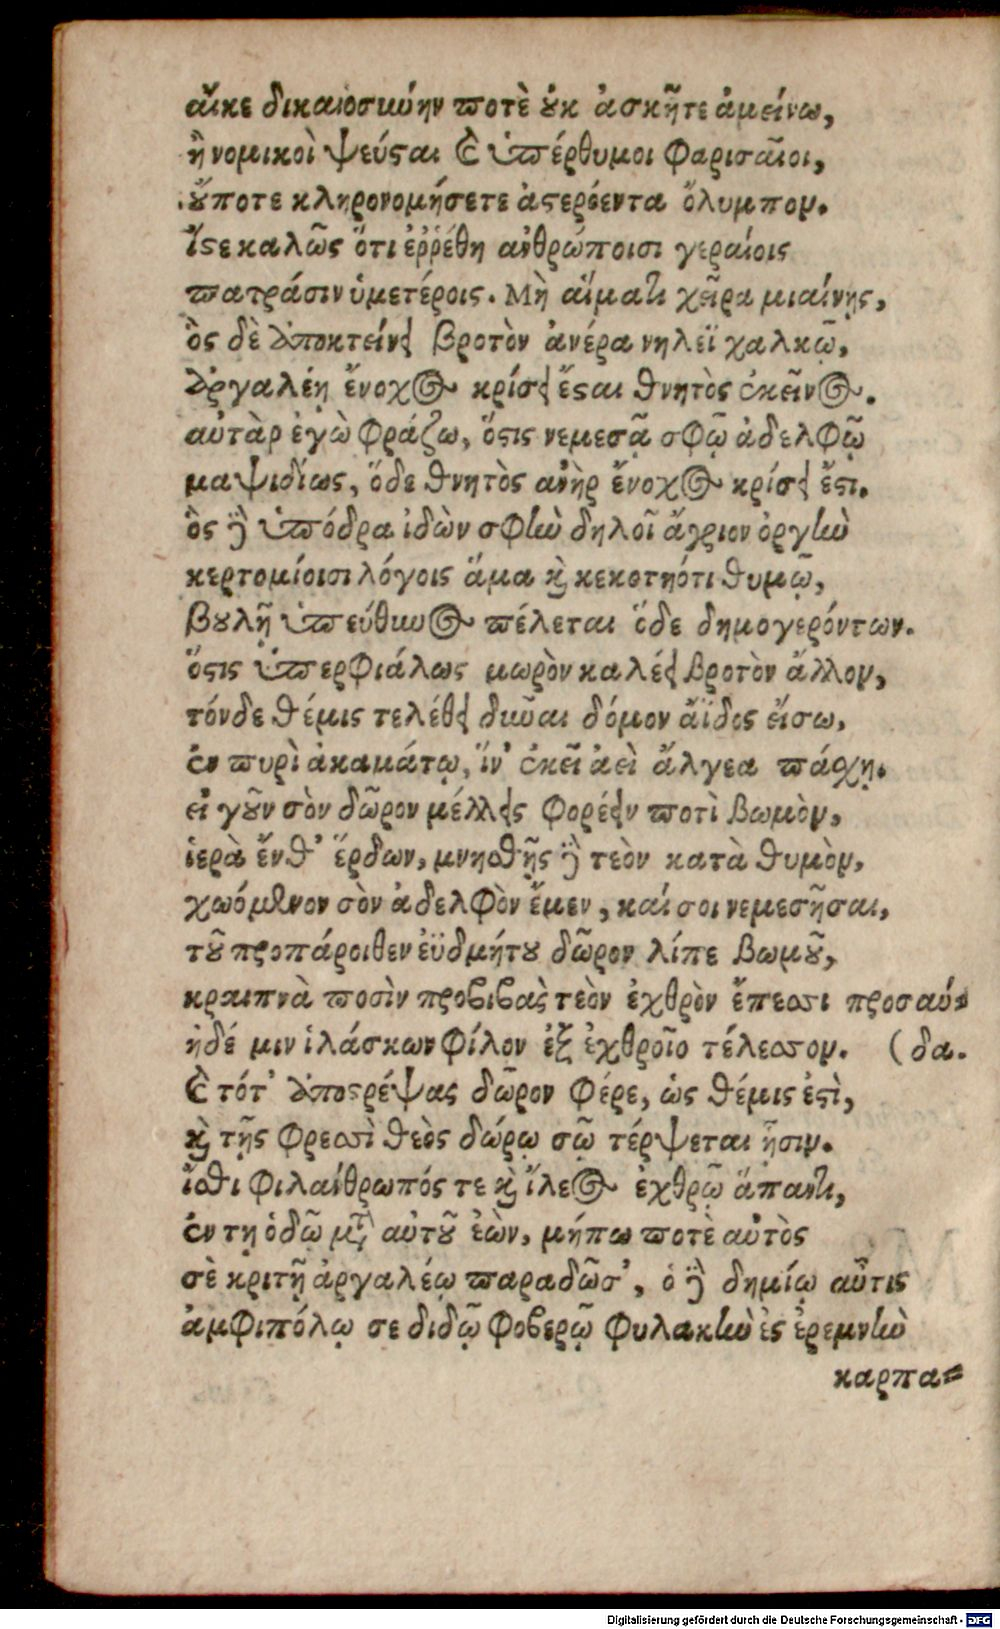 αἴκε δικαιοσύνην ποτὲ οὐκ ἀσκῆτε ἀμείνω,
ἢ νομικοὶ ψεύσται καὶ ὑπέρθυμοι Φαρισαῖοι,
οὔποτε κληρονομήσετε ἀστερόεντα ὄλυμπον.
ἴστε καλῶς ὅτι ἐῤῥέθη ἀνθρώποισι γεραίοις
πατράσιν ὑμετέροις. Μὴ αἵματι χεῖρα μιαίνῃς,
ὃς δὲ ἀποκτείνει βροτὸν ἀνέρα νηλέϊ χαλκῷ,
ἀργαλέῃ ἔνοχος κρίσει ἔσται θνητὸς ἐκεῖνος.
αὐτὰρ ἐγὼ φράζω, ὅστις νεμεσᾷ σφῷ ἀδελφῷ
μαψιδίως, ὅδε θνητὸς ἀνὴρ ἔνοχος κρίσει ἔστι.
ὃς δὲ ὑπόδρα ἰδὼν σφὴν δηλοῖ ἄγριον ὀργὴν
κερτομίοισι λόγοις ἅμα καὶ κεκοτηότι θυμῷ,
βουλῇ ὑπεύθυνος πέλεται ὅδε δημογερόντων.
ὅστις ὑπερφιάλως μωρὸν καλέει βροτὸν ἄλλον,
τόνδε θέμις τελέθει δῦναι δόμον ἄϊδος εἴσω,
ἐν πυρὶ ἀκαμάτῳ, ἵν' ἐκεῖ ἀεὶ ἄλγεα πάσχῃ.
εἰ γοῦν σὸν δῶρον μέλλεις φορέειν ποτὶ βωμὸν,
ἱερὰ ἔνθ' ἕρδων, μνησθῇς δὲ τεὸν κατὰ θυμὸν,
χωόμενον σὸν ἀδελφὸν ἔμεν, καί σοι νεμεσῆσαι,
τοῦ προπάροιθεν ἐϋδμήτου δῶρον λίπε βωμοῦ,
κραιπνὰ ποσὶν προβιβὰς τεὸν ἐχθρὸν ἔπεσσι προσαύ=
ἠδέ μιν ἱλάσκων φίλον ἐξ ἐχθροῖο τέλεσσον. (δα.
καὶ τότ' ἀποστρέψας δῶρον φέρε, ὡς θέμις ἐστὶ,
καὶ τῇς φρεσσὶ θεὸς δώρῳ σῷ τέρψεται ᾗσιν.
ἴσθι φιλαίθρωπός τε καὶ ἵλεος ἐχθρῷ ἅπαντι,
ἐν τῃ ὁδῷ μετ' αὐτοῦ ἐὼν, μήπω ποτὲ αὐτὸς
σὲ κριτῇ ἀργαλέῳ παραδῶσ', ὁ δὲ δημίῳ αὖτις
ἀμφιπόλῳ σε διδῷ φοβερῷ φυλακὴν ἐς ἐρεμνὴν
καρπα=
Digitalisierung gefördert durch die Deutsche Forschungsgemeinschaft - DFG